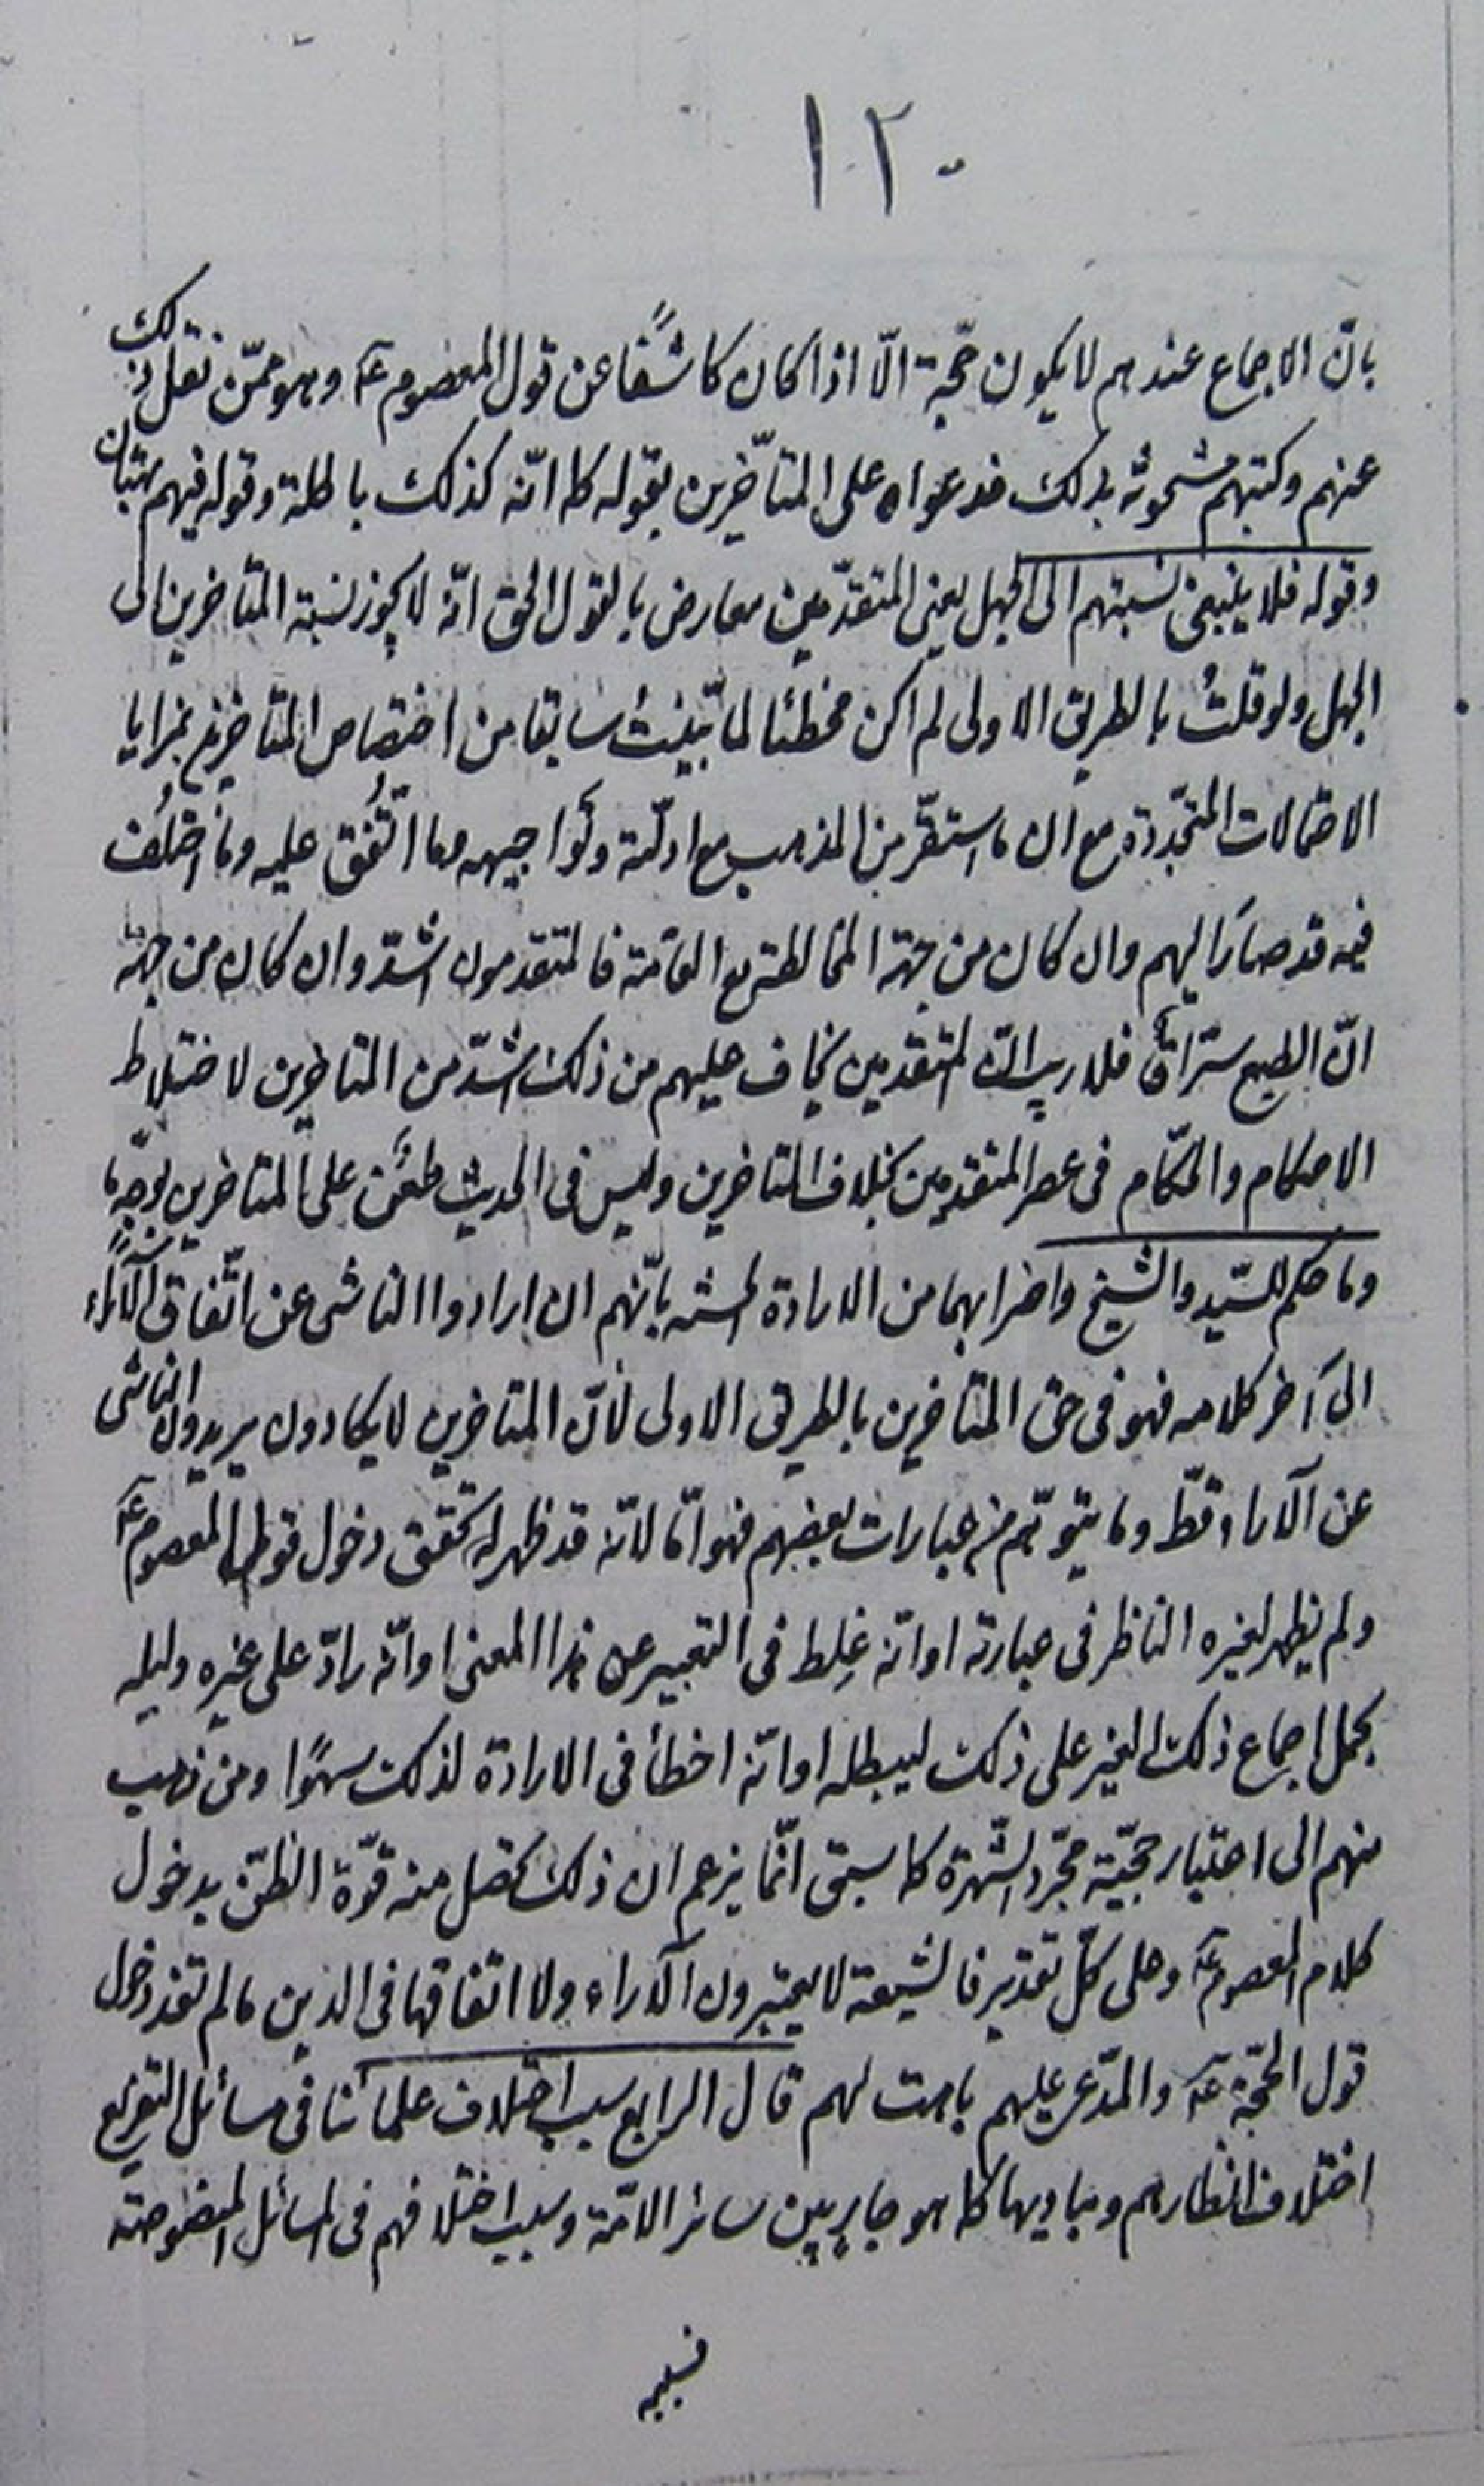 ١٢٠
بانّ الاجماع عندهم لا يكون حجّة الّا اذا كان كاشفًا عن قول المعصوم عؑ وهو ممّن نقل ذلك
عنهم وكتبهم مشحونة بذلك فدعواه على المتأخّرين بقوله كما انّه كذلك باطلة وقوله فيهم بهتان
وقوله فلا ينبغي نسبتهم الى الجهل يعني المتقدّمين معارض بالقول الحق انّه لا يجوز نسبة المتاخرين الى
الجهل ولو قلتُ بالطريق الاولى لم اكن مخطئا لما بيّنتُ سابقا من اختصاص المتاخرين بمزايا
الاحتمالات المتجدّدة مع ان ما استقرّ من المذهب مع ادلّته وتواجيهه وما اتُّفق عليه وما اختُلف
فيه قد صار اليهم وان كان من جهة المخالطة مع العامّة فالمتقدمون اشدّ وان كان من جهة
انّ الطبع سرّاق فلا ريب انّ المتقدمين يخاف عليهم من ذلك اشدّ من المتاخرين لاختلاط
الاحكام والحكّام في عصر المتقدمين بخلاف المتاخرين وليس في الحديث طعن على المتاخرين بوجهٍ ما
وما حكم للسّيد والشيخ واضرابهما من الارادة الحسنة بانّهم ان ارادوا الناشي عن اتّفاق الآراء
الى آخر كلامه فهو في حق المتاخرين بالطريق الاولى لانّ المتاخرين لا يكادون يريدون الناشي
عن الآراء قطّ وما يتوهّم من عبارات بعضهم فهو امّا لانّه قد ظهر له تحقق دخول قول المعصوم عؑ
ولم يظهر لغيره الناظر في عبارته او انّه غلط في التعبير عن هذا المعنى او انّه رادّ على غيره ولعله
يحمل اجماع ذلك الغير على ذلك ليبطله او انّه اخطأ في الارادة لذلك سهوًا ومن ذهب
منهم الى اعتبار حجيّة مجرّد الشّهرة كما سبق انّما يزعم ان ذلك يحصل منه قوّة الظنّ بدخول
كلام المعصوم عؑ وعلى كلّ تقدير فالشيعة لا يعتبرون الآراء ولا اتفاقها في الدين ما لم تفد دخول
قول الحجّة عؑ والمدّعي عليهم باهت لهم قال الرابع سبب اختلاف علمائنا في مسائل التفريع
اختلاف انظارهم ومباديها كما هو جارٍ بين سائر الامّة وسبب اختلافهم في المسائل المنصوصة